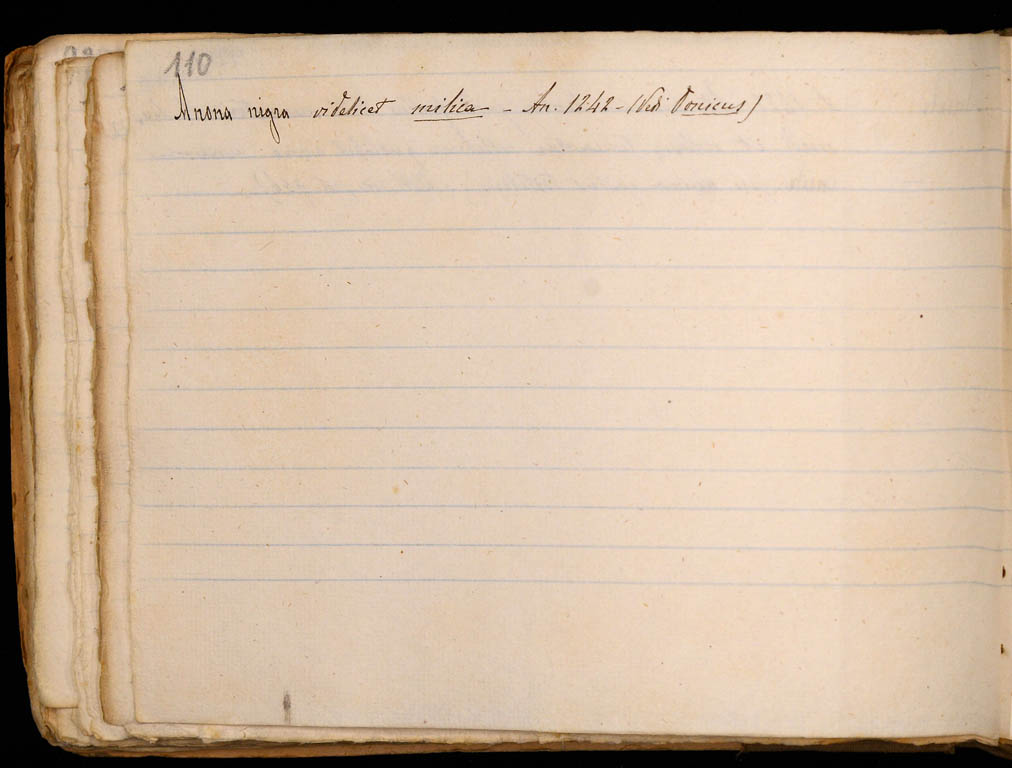 110
Anona nigra videlicet milica - An. 1242 - (Vedi Donicus)